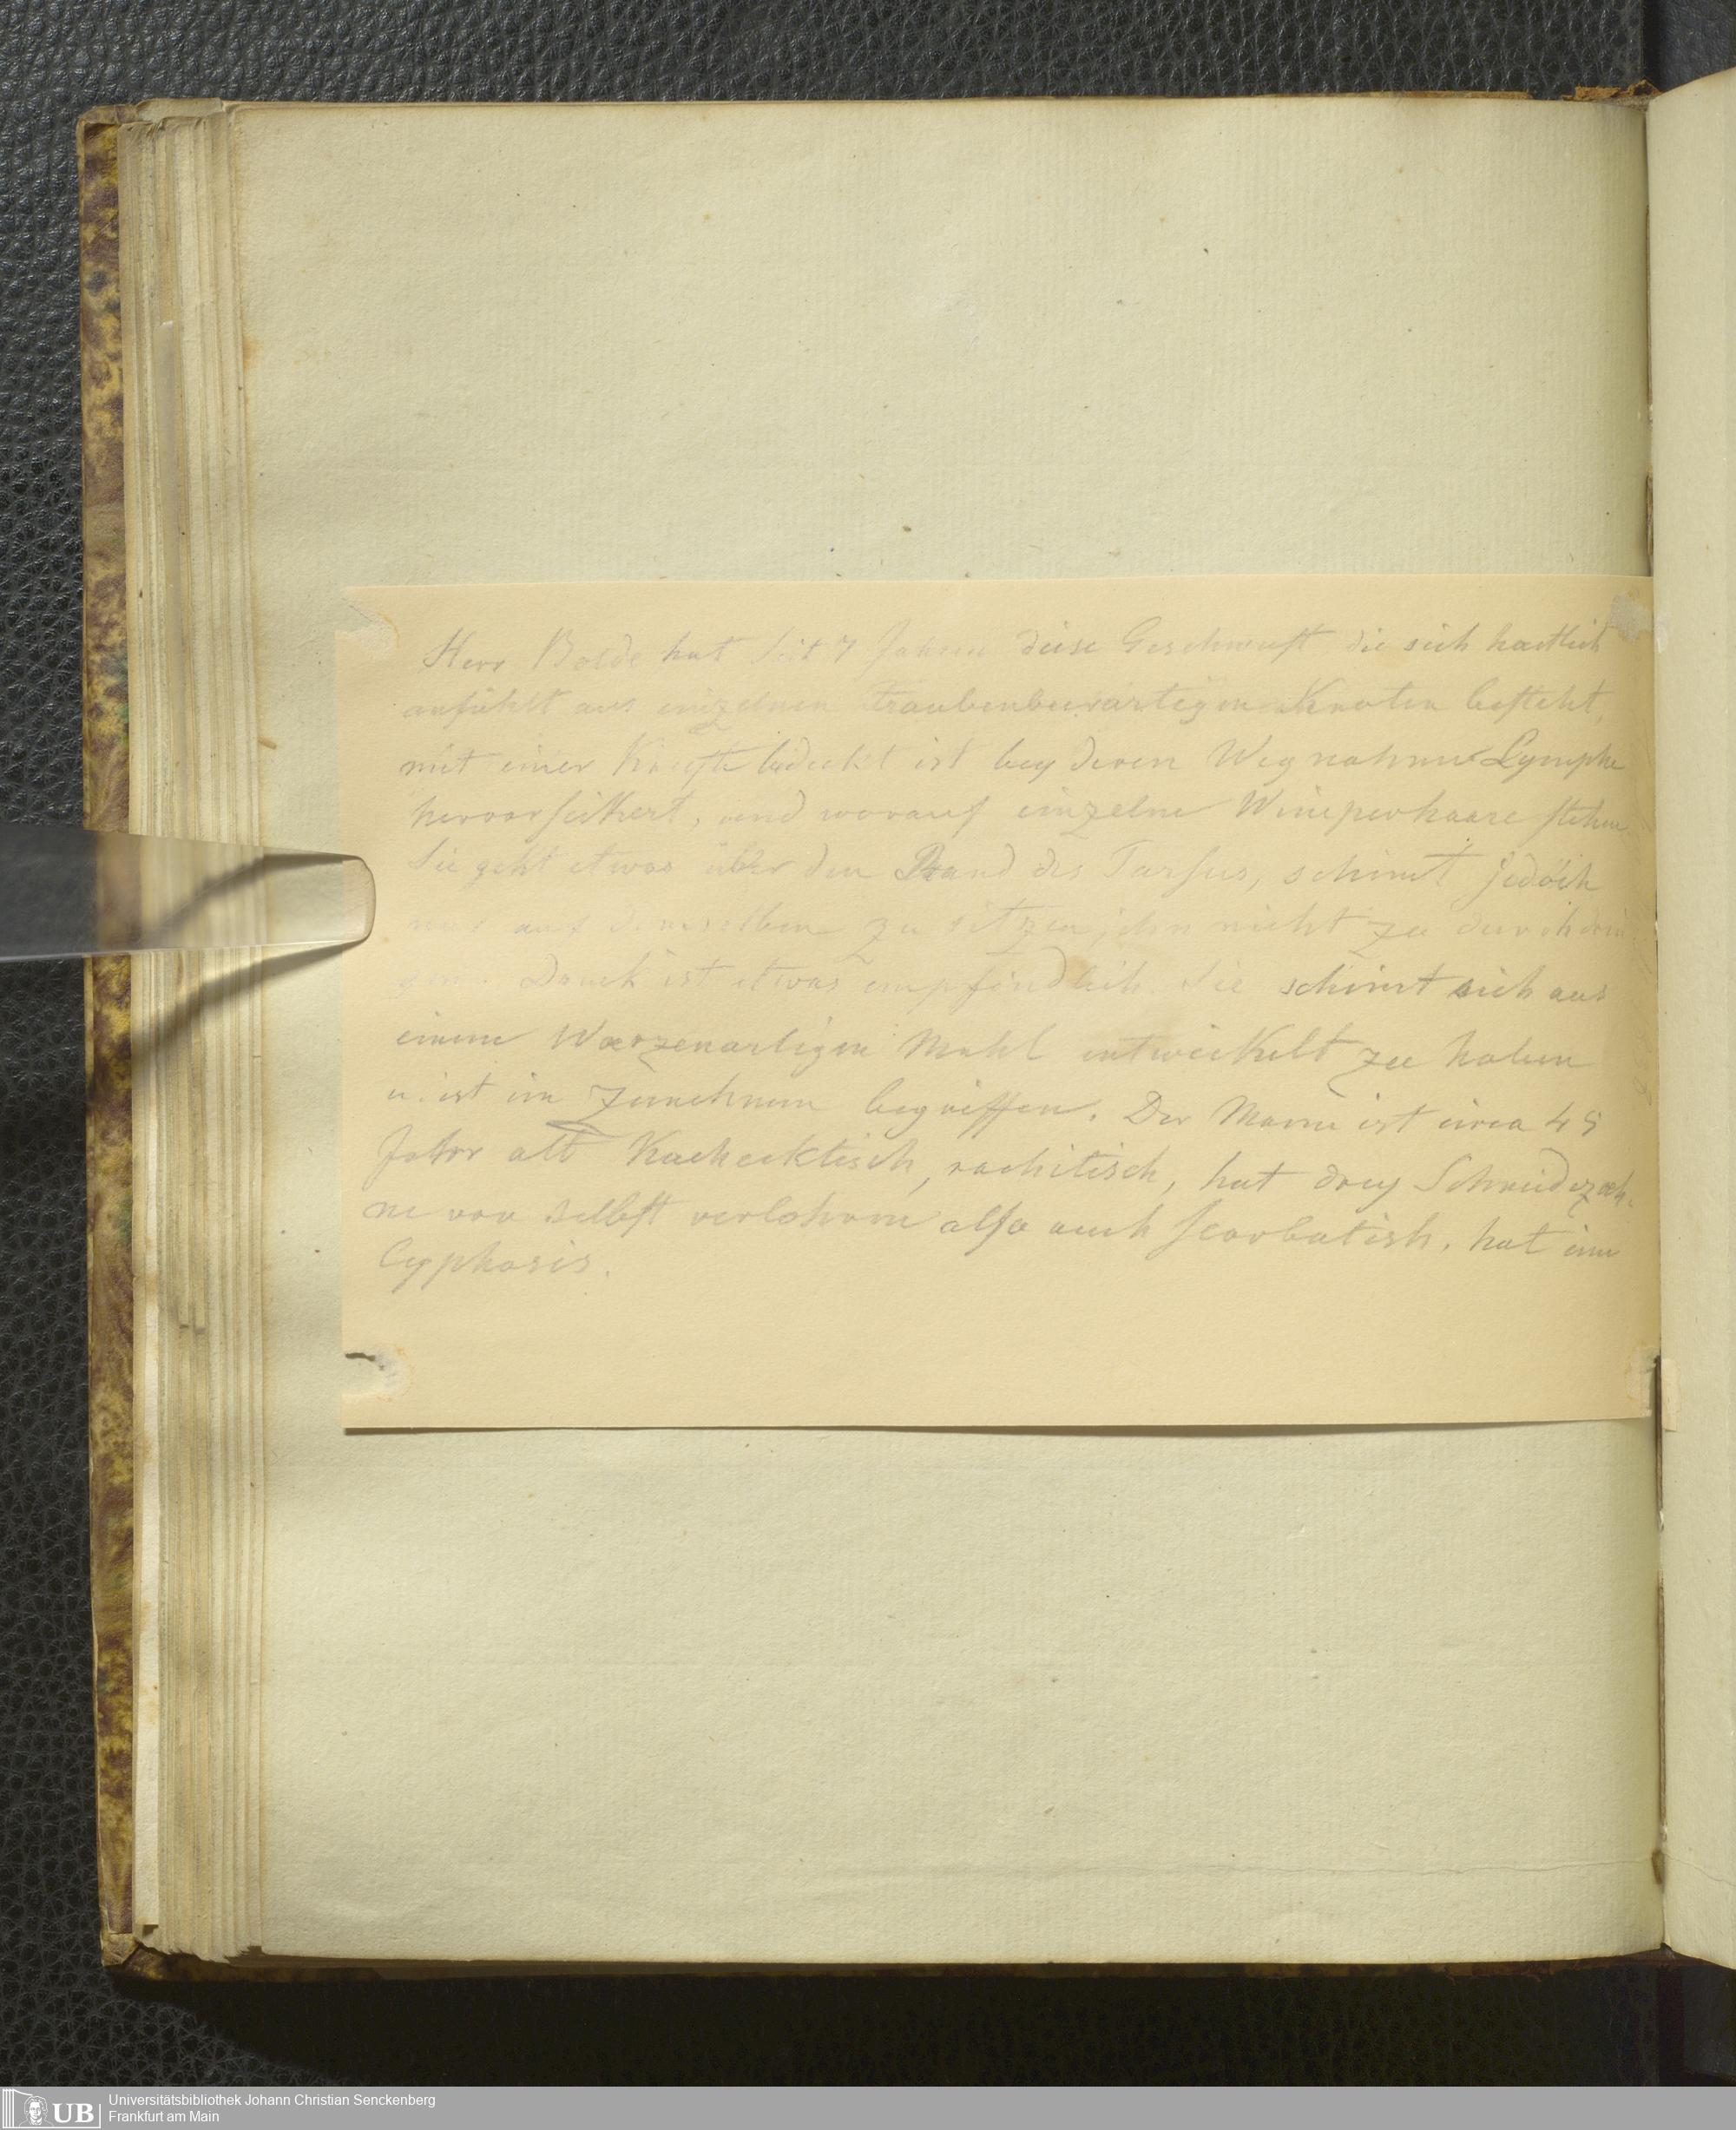 Herr Bolde hat seit 7 Jahren diese Geschwulst die sich haertlich
anfühlt aus einzelnen traubenbeerartigen Knoten besteht,
mit einer Kruste bedeckt ist bey deren Wegnahme Lymphe
hervorsickert, und worauf einzelne Wimperhaare stehen
Sie geht etwas über den Rand des Tarsus, scheint jedoch
nur auf demselben zu sitzen, ihn nicht zu durchdrin
gen. Druck ist etwas empfindlich. Sie scheint sich aus
einem Warzenartigen Mahl entwickelt zu haben
u. ist im Zunehmen begriffen. Der Mann ist circa 45
Jahr alt Kachecktisch, rachitisch, hat drey Schneidezaeh-
ne von selbst verlohren also auch scorbutish. hat eine
Cyphosis.
UB
Universitätsbibliothek Johann Christian Senckenberg
Frankfurt am Main